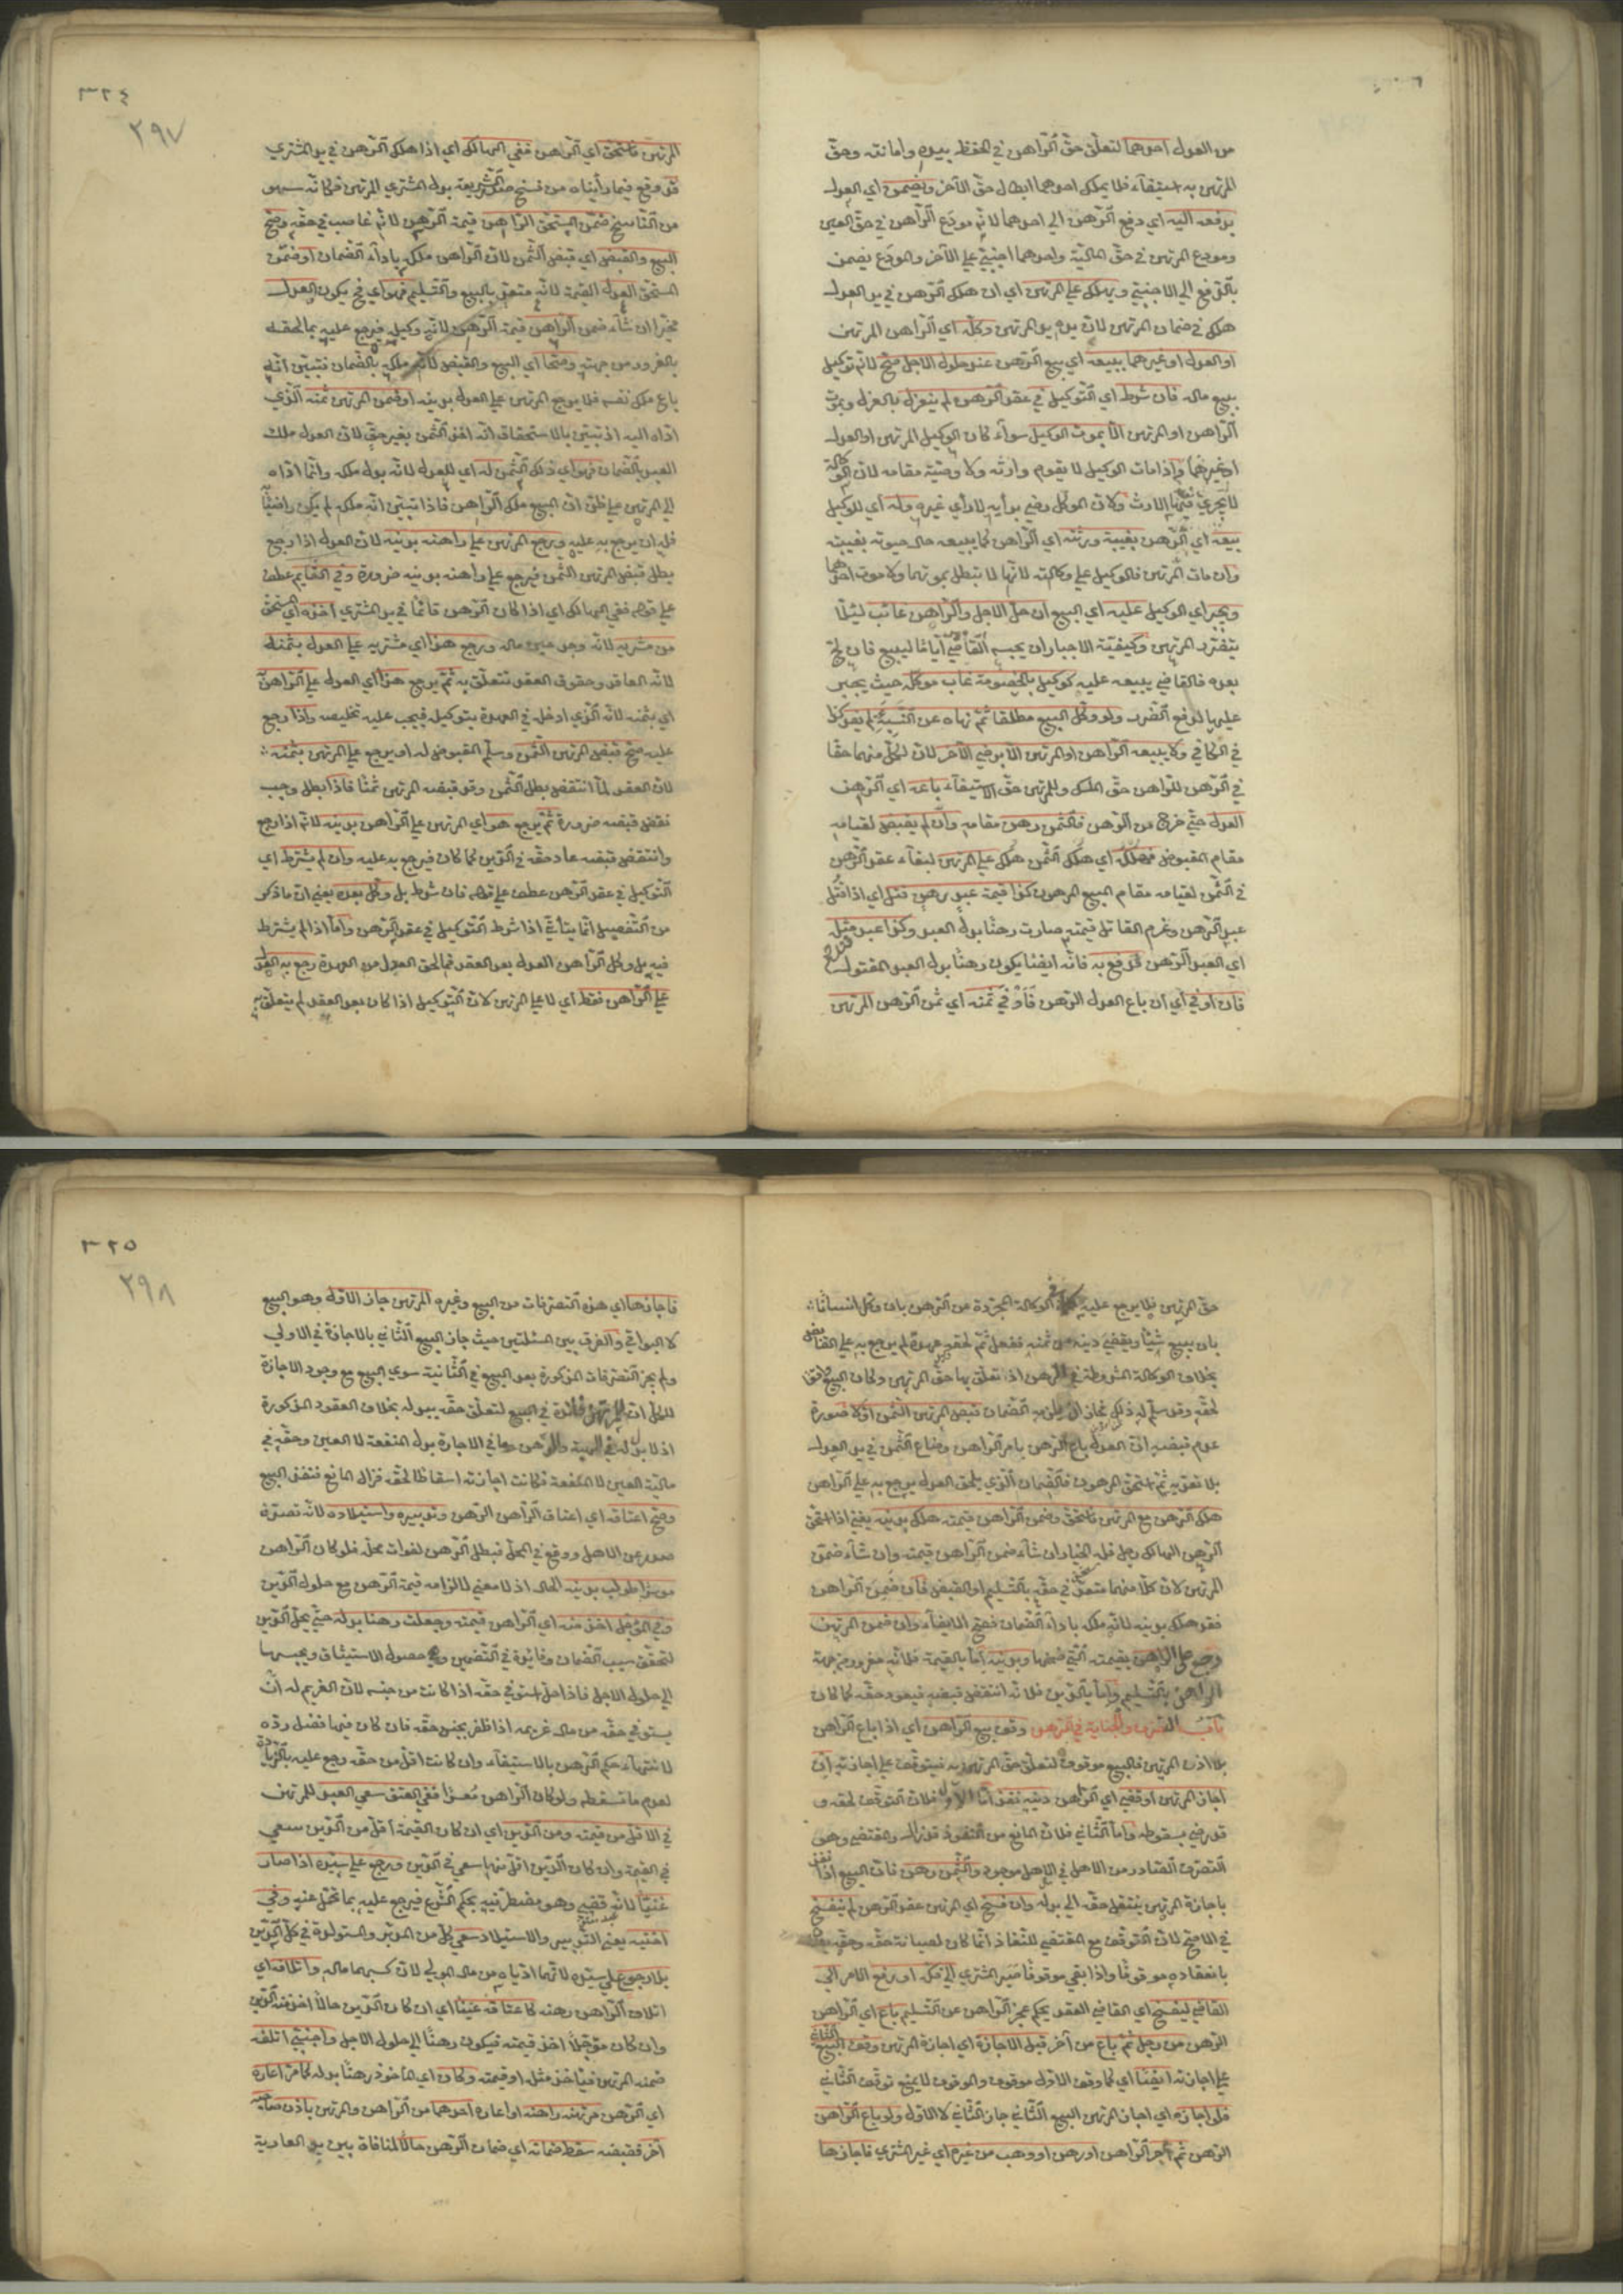 من العدل احدهما لتعلق حق الراهن في الحفظ بيده وامانته وحق
المرتهن به استيفاء فلا يملك احدهما ابطال حق الآخر ويضمن اي العدل
بدفعه اليه اي دفع الرهن الى احدهما لانه مودع الراهن في حق العين
ومودع المرتهن في حق المالية واحدهما اجنبي على الآخر والمودع يضمن
بالدفع الى الاجنبي ويهلك على المرتهن اي ان هلك الرهن في يد العدل
هلك في ضمان المرتهن لان يده يد المرتهن وكله اي الراهن المرتهن
او العدل او غيرهما ببيعه اي بيع الرهن عند حلول الاجل صح لانه توكيل
ببيع ماله فان شرط اي التوكيل في عقد الرهن لم ينعزل بالعزل وبموت
الراهن او المرتهن الا بموت الوكيل سواء كان الوكيل المرتهن او العدل
او غيرهما واذا مات الوكيل لا يقوم وارثه ولا وصيته مقامه لان الوكالة
لا يجري فيها الارث ولان الموكل رضي برأيه لا رأي غيره وله اي للوكيل
بيعه اي الرهن بغيبة ورثته اي الراهن كما يبيعه حال حيوته بغيبته
وان مات المرتهن فالوكيل على وكالته لانها لا تبطل بموتهما ولا موت احدهما
ويجبر اي الوكيل عليه اي البيع ان حل الاجل والراهن غائب لئلا
يتضرر المرتهن وكيفية الاجبار ان يحبسه القاضي اياما ليبيع فان لج
بعده فالقاضي يبيعه عليه كوكيل بالخصومة غاب موكله حيث يجبر
عليها لدفع الضرر ولو وكل البيع مطلقا ثم نهاه عن النسيئة لم يفد كذا
في الكافي ولا يبيعه الراهن او المرتهن الا برضى الآخر لان لكل منهما حقا
في الرهن للراهن حق الملك وللمرتهن حق الاستيفاء باعه اي الرهن
العدل حتى خرج من الرهن فالثمن رهن مقامه وان لم يقبض لقيامه
مقام المقبوض فهلكه اي هلك الثمن هلك على المرتهن لبقاء عقد الرهن
في الثمن لقيامه مقام المبيع المرهون كذا قيمة عبد رهن قتل اي اذا قتل
عبد الرهن وغرم القاتل قيمته صارت رهنا بدل العبد وكذا عبد قتله
اي العبد الرهن فدفع به فانه ايضا يكون رهنا بدل العبد المقتول
فان اوفى اي ان باع العدل الرهن فاوفى ثمنه اي ثمن الرهن المرتهن
٣٢٤
٢٩٧
المرتهن فاستحق اي الراهن ففي الهالك اي اذا هلك الرهن في يد المشتري
قد وقع فيما رأيناه من نسخ صدر الشريعة بدل المشتري المرتهن فكانه سهو
من الناسخ ضمن المستحق الراهن قيمة الرهن لانه غاصب في حقه وصح
البيع والقبض اي قبض الثمن لان الراهن ملكه باداء الضمان او ضمن
المستحق العدل القيمة لانه متعد بالبيع والتسليم فهو اي ح يكون العدل
مخير ان شاء ضمن الراهن قيمة الرهن لانه وكيله فيرجع عليه بما لحقه
بالغرور من جهته وصحا اي البيع والقبض لانه ملكه بالضمان فتبين انه
باع ملك نفسه فلا يرجع المرتهن على العدل بدينه او ضمن المرتهن ثمنه الذي
اداه اليه اذ تبين بالاستحقاق انه اخذ الثمن بغير حق لان العدل ملك
العبد بالضمان فهو اي ذلك الثمن له اي للعدل لانه بدل ملكه وانما اداه
الى المرتهن على ظن ان المبيع ملك الراهن فاذا تبين انه ملكه لم يكن راضيا
فله ان يرجع به عليه ويرجع المرتهن على راهنه بدينه لان العدل اذا رجع
بطل قبض المرتهن الثمن فيرجع على راهنه بدينه ضرورة وفي القائم عطف
على قوله ففي الهالك اي اذا كان الرهن قائما في يد المشتري اخذه اي المستحق
من مشتريه لانه وجد عين ماله ورجع هذا اي مشتريه على العدل بثمنه
لانه العاقد وحقوق العقد تتعلق به ثم يرجع هذا اي العدل على الراهن
اي بثمنه لانه الذي ادخله في العهدة بتوكيله فيجب عليه تخليصه واذا رجع
عليه صح قبض المرتهن الثمن وسلم المقبوض له او يرجع على المرتهن بثمنه
لان العقد لما انتقض بطل الثمن وقد قبضه المرتهن ثمنا فاذا بطل وجب
نقض قبضه ضرورة ثم يرجع هو اي المرتهن على الراهن بدينه لانه اذا رجع
وانتقض قبضه عاد حقه في الدين كما كان فيرجع به عليه وان لم يشترط اي
التوكيل في عقد الرهن عطف على قوله فان شرط بل وكل بعده يعني ان ما ذكر
من التفصيل انما يتأتى اذا شرط التوكيل في عقد الرهن واما اذا لم يشترط
فيه بل وكل الراهن العدل بعد العقد فما لحق العدل من العهدة رجع به العدل
على الراهن فقط اي لا على المرتهن لان التوكيل اذا كان بعد العقد لم يتعلق به
حق المرتهن فلا يرجع عليه كما في الوكالة المجردة عن الرهن بان وكل انسانا
بان يبيع شيئا ويقضي دينه من ثمنه ففعل ثم لحقه عهدة لم يرجع به على القابض
بخلاف الوكالة المشروطة في الرهن اذ تعلق بها حق المرتهن وكان البيع
لحقه وقد سلم له ذلك فجاز ان يلزمه الضمان قبض المرتهن الثمن اولا صورة
عدم قبضه ان العدل باع الرهن بامر الراهن وضاع الثمن في يد العدل
بلا تعديه ثم استحق المرهون فالضمان الذي يلحق العدل يرجع به على الراهن
هلك الرهن مع المرتهن فاستحق وضمن الراهن قيمته هلك بدينه يعني اذا استحق
الرهن الهالك رجل فله الخيار ان شاء ضمن الراهن قيمته وان شاء ضمن
المرتهن لان كلا منهما متعد في حقه بالتسليم او القبض فان ضمن الراهن
فقد هلك بدينه لانه ملكه باداء الضمان فصح الايفاء وان ضمن المرتهن
رجع على الراهن بقيمته التي ضمنها وبدينه اما بالقيمة فلانه مغرور من جهة
الراهن بالتسليم واما بالدين فلانه انتقض قبضه فيعود حقه كما كان
باب التصرف والجناية في الرهن وقف بيع الراهن اي اذا باع الراهن
بلا اذن المرتهن فالبيع موقوف لتعلق حق المرتهن به فيتوقف على اجازته ان
اجاز المرتهن او قضى اي الراهن دينه نفذ اما الاول فلان التوقف لحقه و
قد رضي بسقوطه واما الثاني فلان المانع من النفوذ قد زال والمقتضي وهو
التصرف الصادر من الاهل في المحل موجود والثمن رهن فان البيع اذا نفذ
باجازة المرتهن ينتقل حقه الى بدله وان فسخ اي المرتهن عقد الرهن لم ينفسخ
في الاصح لان التوقف مع المقتضي للنفاذ انما كان لصيانة حقه وحقه
بانعقاده موقوفا واذا بقي موقوفا صبر المشتري الى فكه او رفع الامر الى
القاضي ليفسخ اي القاضي العقد بحكم عجز الراهن عن التسليم باع اي الراهن
الرهن من رجل ثم باع من آخر قبل الاجازة اي اجازة المرتهن وقف البيع الثاني
على اجازته ايضا اي كما وقف الاول موقوف والموقوف لا يمنع توقف الثاني
فلو اجازه اي اجاز المرتهن البيع الثاني جاز الثاني لا الاول ولو باع الراهن
الرهن ثم آجر الراهن او رهن او وهب من غيره اي غير المشتري فاجازها
٣٢٥
٢٩٨
فاجازها اي هذه التصرفات من البيع وغيره المرتهن جاز الاول وهو البيع
لا البواقي والفرق بين المسئلتين حيث جاز البيع الثاني بالاجازة في الاولى
ولم يجز التصرفات المذكورة بعد البيع في الثانية سوى البيع مع وجود الاجازة
للكل ان للمرتهن فائدة في البيع لتعلق حقه ببدله بخلاف العقود المذكورة
اذ لا بدل له في الهبة والرهن وما في الاجارة بدل المنفعة لا العين وحقه في
مالية العين لا المنفعة فكانت اجازته اسقاطا لحقه فزال المانع فنفذ البيع
وصح اعتاقه اي اعتاق الراهن الرهن وتدبيره واستيلاده لانه تصرف
صدر عن الاهل ووقع في المحل فبطل الرهن لفوات محله فلو كان الراهن
موسرا طولب بدينه الحال اذ لا معنى لالزامه قيمة الرهن مع حلول الدين
وفي المؤجل اخذ منه اي الراهن قيمته وجعلت رهنا بدله حتى يحل الدين
لتحقق سبب الضمان وفائدة في التضمين وهي حصول الاستيثاق ويحبسها
الى حلول الاجل فاذا حل استوفى حقه اذا كانت من جنسه لان الغريم له ان
يستوفي حقه من مال غريمه اذا ظفر بجنس حقه فان كان فيها فضل رده
لانتهاء حكم الرهن بالاستيفاء وان كانت اقل من حقه رجع عليه بالزيادة
لعدم ما تسقطه ولو كان الراهن معسرا ففي العتق سعى العبد للمرتهن
في الاقل من قيمته ومن الدين اي ان كان القيمة اقل من الدين سعى
في القيمة وان كان الدين اقل منها سعى في الدين ورجع على سيده اذا صار
غنيا لانه قضى وهو مضطر فيه بحكم الشرع فيرجع عليه بما تحمل عنه وفي
اختيه يعني التدبير والاستيلاد سعى كل من المدبر والمستولدة في كل الدين
بلا رجوع على سيده لانهما اذ ياه من مال المولى لان كسبهما ماله واتلافه اي
اتلاف الراهن رهنه كاعتاقه غنيا اي ان كان الدين حالا اخذ منه الدين
وان كان مؤجلا اخذ قيمته فيكون رهنا الى حلول الاجل واجنبي اتلفه
ضمنه المرتهن فيأخذ مثله او قيمته وكان اي المأخوذ رهنا بدله كما مر اعاره
اي الرهن مرتهنه راهنه او اعاره احدهما من الراهن والمرتهن باذن صاحبه
آخر فقبضه سقط ضمانه اي ضمان الرهن حالا لمنافاة بين يد العارية